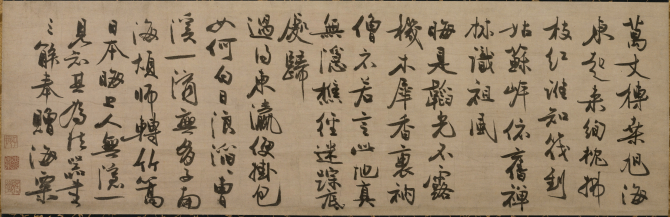 萬丈榑桑旭海
東起來絢枕拂
枝紅誰知筏到
姑蘇岸依舊禪
林識祖風
晦是韜光不露
機木犀香裏衲
僧衣若言此地真
無隱樵徑迷踪底
處歸
過得東瀛便掛包
如何白日浪滔〻曹
溪一滴無多子兩
海煩師轉竹篙
日本晦上人無隱一
見知其為法器
三解奉贈海粟